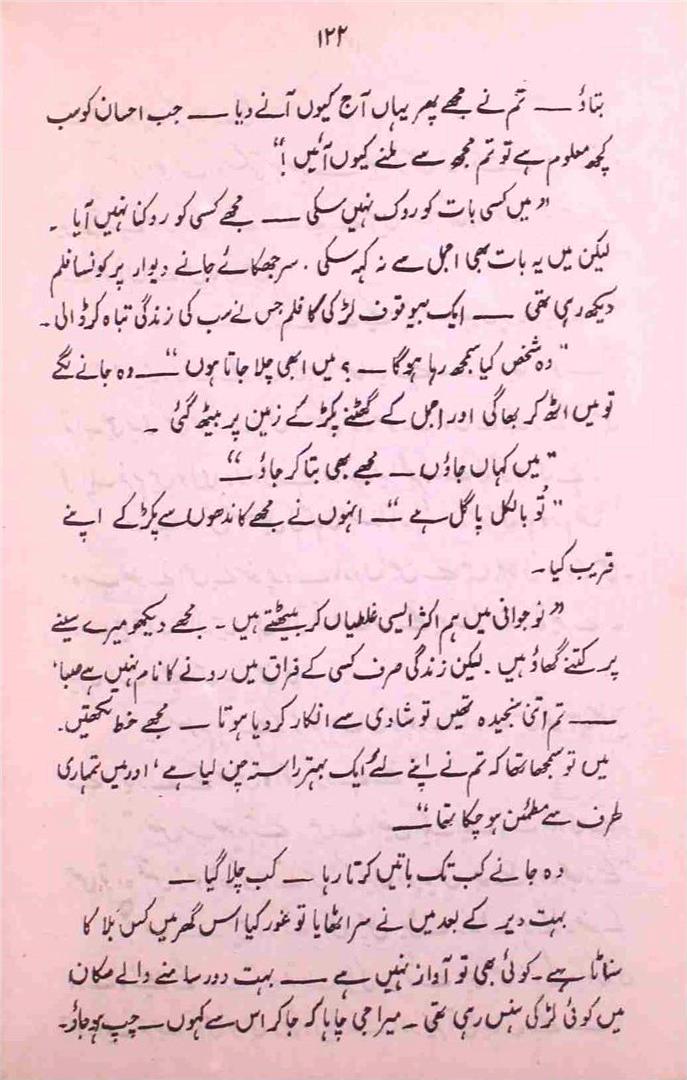 ۱۲۲
بتاؤ ــــ تم نے مجھے پھر یہاں آج کیوں آنے دیا ــــ جب احسان کو سب
کچھ معلوم ہے تو تم مجھ سے ملنے کیوں آئیں !"
"میں کسی بات کو روک نہیں سکی ــــ مجھے کسی کو روکنا نہیں آیا ۔
لیکن میں یہ بات بھی اجمل سے نہ کہہ سکی ۔ سر جھکائے جانے دیوار پر کونسا فلم
دیکھ رہی تھی ــــ ایک بیوقوف لڑکی کا فلم جس نے سب کی زندگی تباہ کر ڈالی ۔
"وہ شخص کیا سمجھ رہا ہوگا ــ ؟ میں ابھی چلا جاتا ہوں" ــ وہ جانے لگے
تو میں اٹھ کر بھاگی اور اجمل کے گھٹنے پکڑ کے زمین پر بیٹھ گئی ۔
"میں کہاں جاؤں ــ مجھے بھی بتا کر جاؤ ــ"
"تُو بالکل پاگل ہے" ــ انہوں نے مجھے کاندھوں سے پکڑ کے اپنے
قریب کیا ۔
"نوجوانی میں ہم اکثر ایسی غلطیاں کر بیٹھتے ہیں ۔ مجھے دیکھو میرے سینے
پر کتنے گھاؤ ہیں ۔ لیکن زندگی صرف کسی کے فراق میں رونے کا نام نہیں ہے صبا ‘
ــــ تم اتنی سنجیدہ تھیں تو شادی سے انکار کر دیا ہوتا ــ مجھے خط لکھتیں ۔
میں تو سمجھا تھا کہ تم نے اپنے لئے ایک بہتر راستہ چن لیا ہے ‘ اور میں تمہاری
طرف سے مطمئن ہو چکا تھا" ــ
وہ جانے کب تک باتیں کرتا رہا ــ کب چلا گیا ــ
بہت دیر کے بعد میں نے سر اٹھایا تو غور کیا اس گھر میں کس بَلا کا
سناٹا ہے ۔ کوئی بھی تو آواز نہیں ہے ــــ بہت دور سامنے والے مکان
میں کوئی لڑکی ہنس رہی تھی ۔ میرا جی چاہا کہ جا کر اس سے کہوں ــ چپ ہو جاؤ ۔